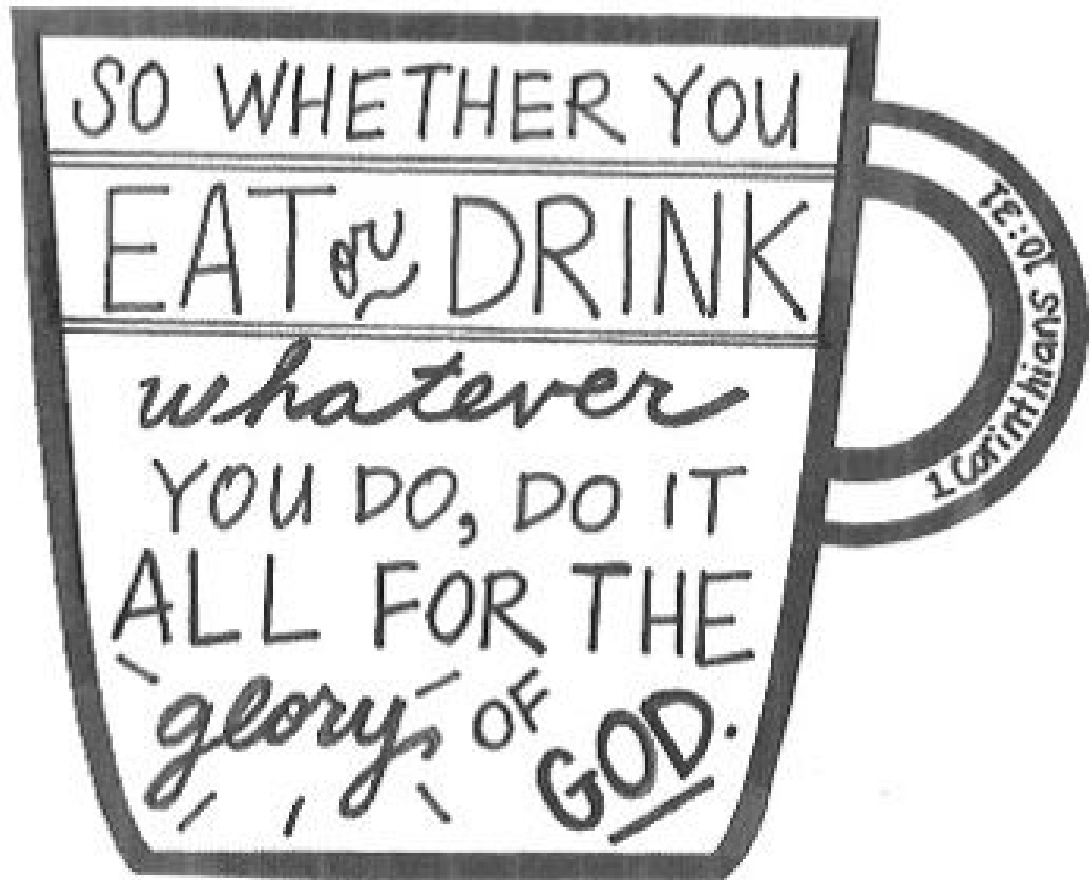 SO WHETHER YOU
EAT or DRINK
whatever
YOU DO, DO IT
ALL FOR THE
glory OF
GOD.
1 Corinthians 10:31